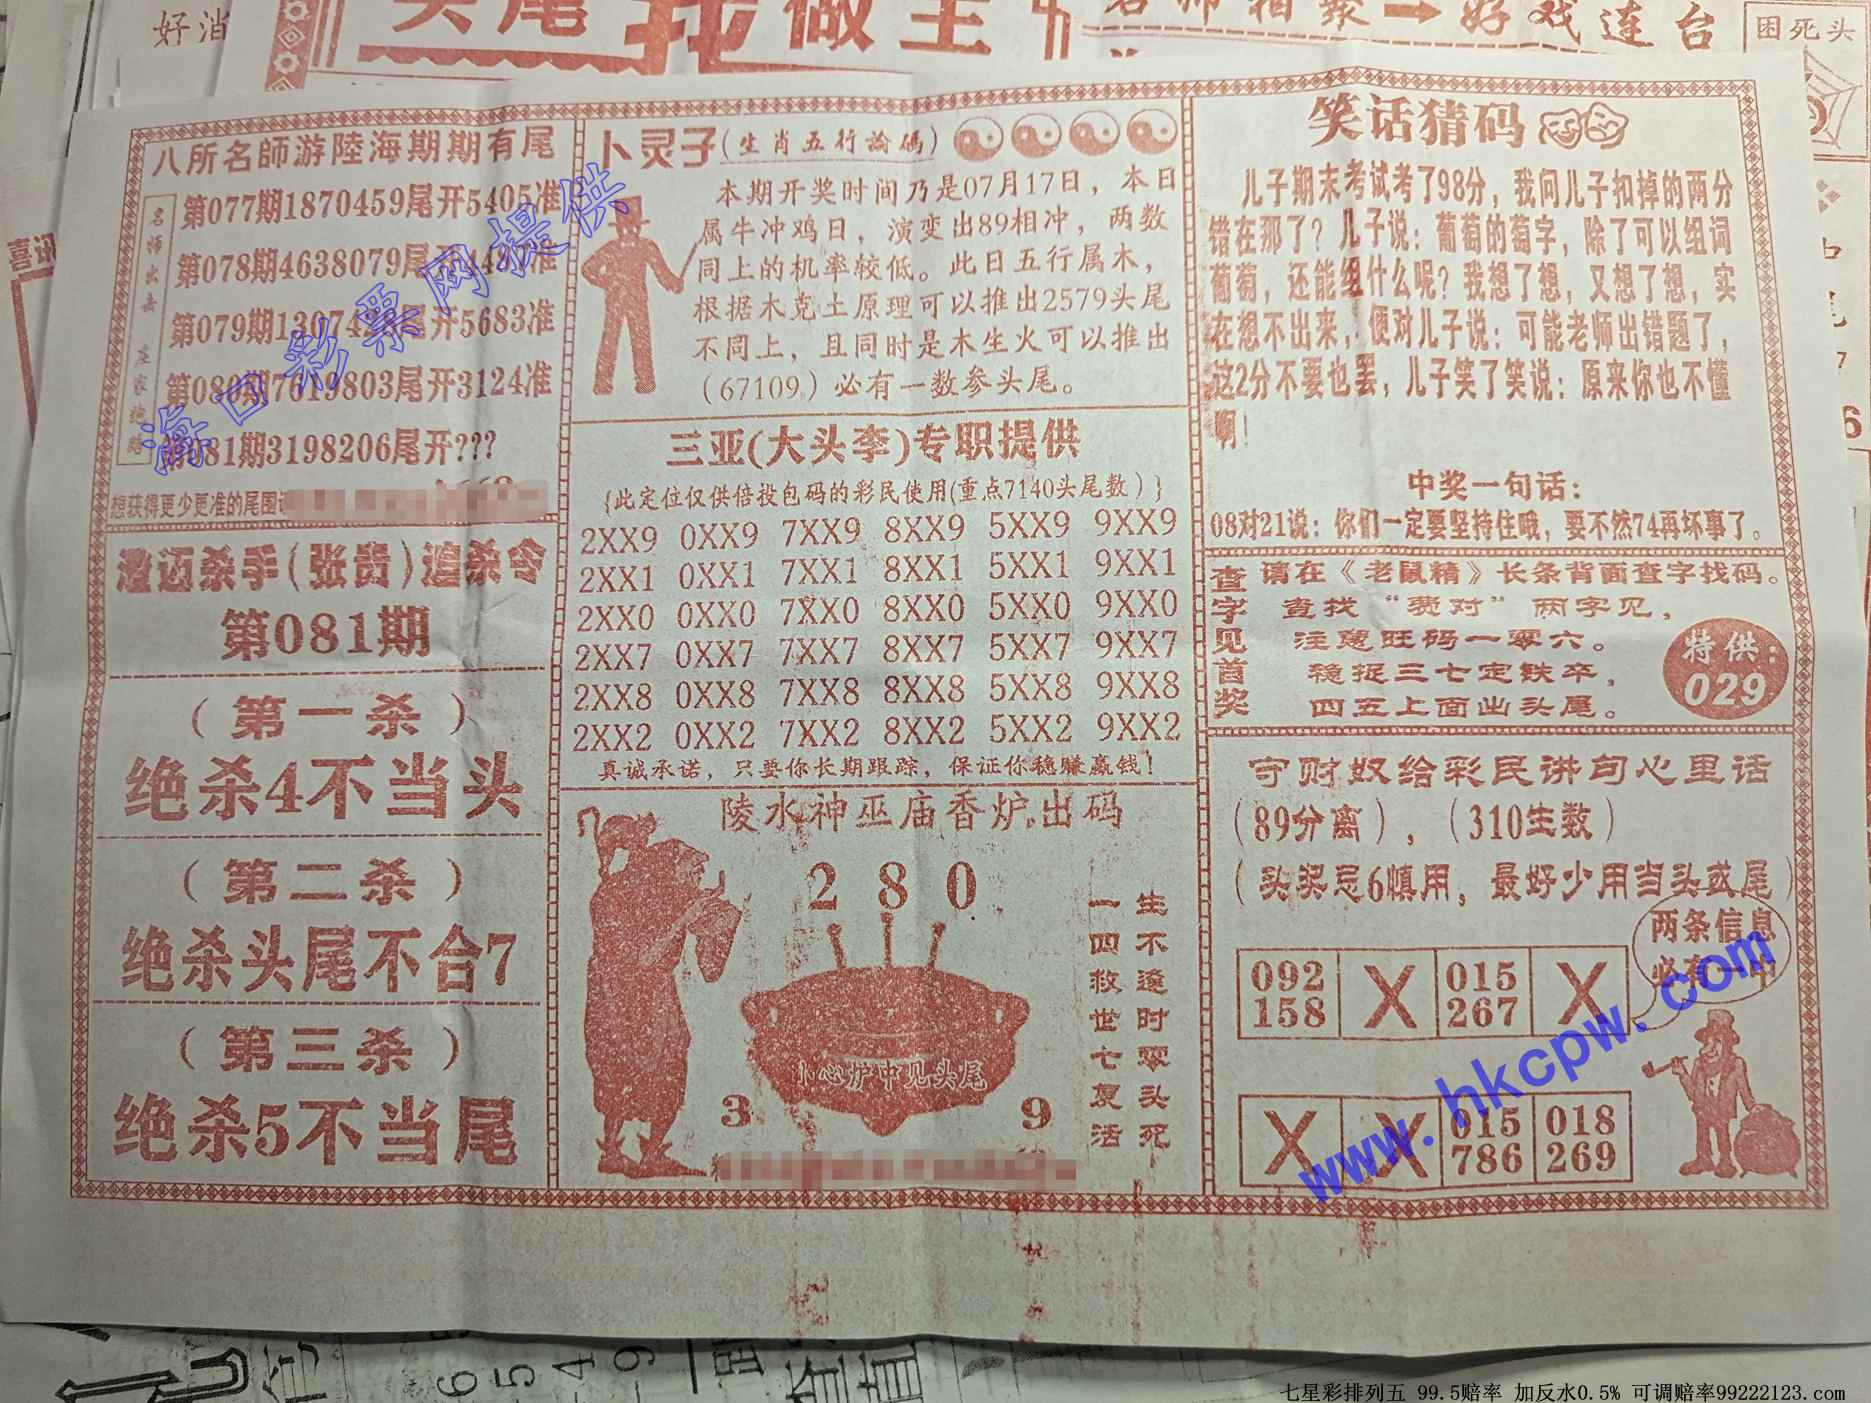 好消
头尾我做主
名师相聚→好戏连台
困死头
喜讯
八所名師游陸海期期有尾
名师出击 庄家绝路
第077期1870459尾开5405准
第078期4638079尾
第079期13074 尾开5683准
第080期7619803尾开3124准
第081期3198206尾开???
想获得更少更准的尾围
澄迈杀手(张贵)追杀令
第081期
(第一杀)
绝杀4不当头
(第二杀)
绝杀头尾不合7
(第三杀)
绝杀5不当尾
卜灵子(生肖五行論碼)
本期开奖时间乃是07月17日，本日
属牛冲鸡日，演变出89相冲，两数
同上的机率较低。此日五行属木，
根据木克土原理可以推出2579头尾
不同上，且同时是木生火可以推出
(67109)必有一数参头尾。
三亚(大头李)专职提供
{此定位仅供倍投包码的彩民使用(重点7140头尾数)}
2XX9 0XX9 7XX9 8XX9 5XX9 9XX9
2XX1 0XX1 7XX1 8XX1 5XX1 9XX1
2XX0 0XX0 7XX0 8XX0 5XX0 9XX0
2XX7 0XX7 7XX7 8XX7 5XX7 9XX7
2XX8 0XX8 7XX8 8XX8 5XX8 9XX8
2XX2 0XX2 7XX2 8XX2 5XX2 9XX2
真诚承诺，只要你长期跟踪，保证你稳赚赢钱！
陵水神巫庙香炉出码
2 8 0
小心炉中见头尾
3 9
生不逢时零头死
一四救世七复活
笑话猜码
儿子期末考试考了98分，我问儿子扣掉的两分
错在那了？儿子说：葡萄的萄字，除了可以组词
葡萄，还能组什么呢？我想了想，又想了想，实
在想不出来，便对儿子说：可能老师出错题了，
这2分不要也罢，儿子笑了笑说：原来你也不懂
啊！
中奖一句话：
08对21说：你们一定要坚持住哦，要不然74再坏事了。
查字见首奖
请在《老鼠精》长条背面查字找码。
查找“赛对”两字见，
注意旺码一零六。
稳捉三七定铁卒，
四五上面出头尾。
特供：
029
守财奴给彩民讲句心里话
(89分离)，(310生数)
(头奖忌6慎用，最好少用当头或尾)
两条信息
必有一中
092 X 015 X
158 267
X X 015 018
786 269
海口彩票网提供
www.hkcpw.com
七星彩排列五 99.5赔率 加反水0.5% 可调赔率99222123.com